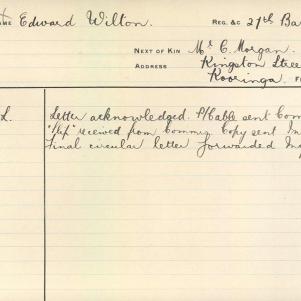 Edward Wilton.
REG. &C 27th Ba
NEXT OF KIN Mr C. Morgan.
ADDRESS Kingston Stree
Kooringa.
L. Letter acknowledged. P/Cable sent Com
received from Comm Copy sent In
Final circular letter forwarded